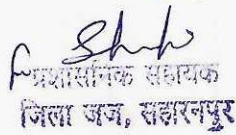 प्रशासनिक सहायक
जिला जज, सहारनपुर